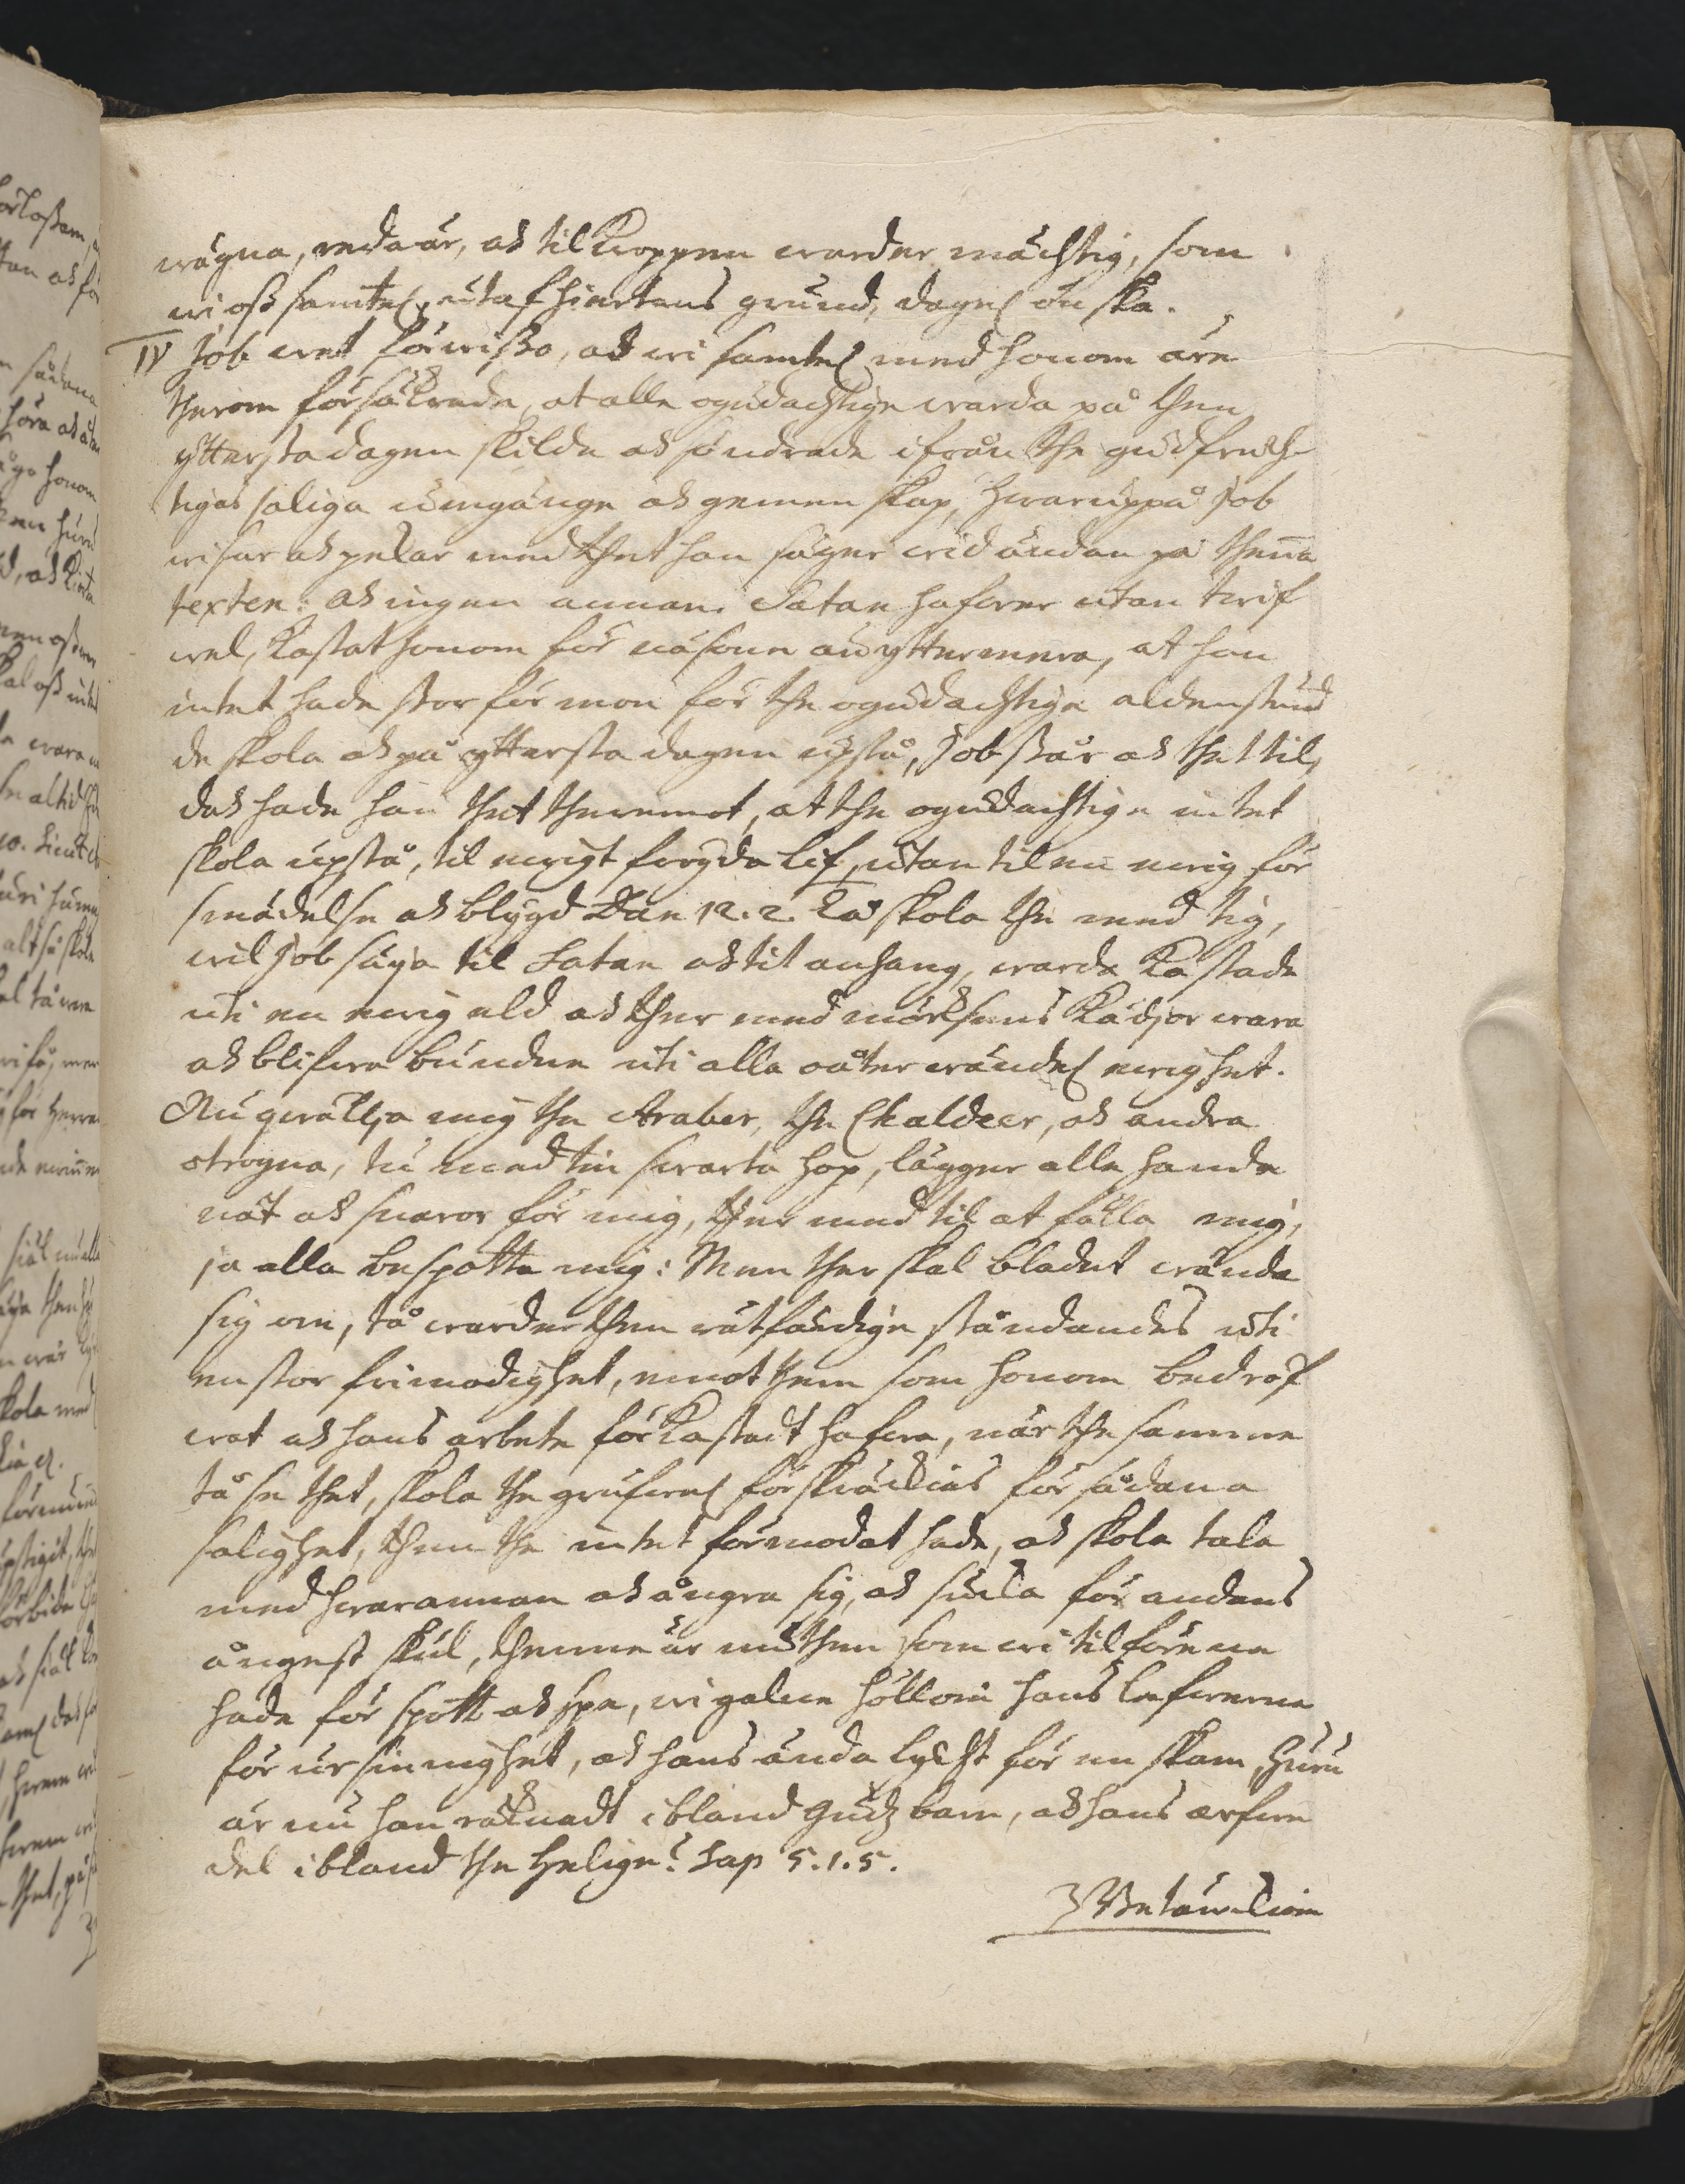 wägna, reda är, och til kroppen warder mächtig, som
wi oss samtel. utaf hiertans grund, dagel önska.
IV Job wet förwisso, och wi samtel med honom äre
therom försäkrade, at alle ogudachtige warda på then
ytterstadagen skilde och söndrade ifrån the gudfruch-
tigas saliga umgänge och gemenskap, hwaruppå Job
wisar och pekar med thet han säger wid ändan på thena
texten: och ingen annan. Satan hafwer utan twif
wel, kastat honom för näsone än yttermera, at han
intet hade stor förmon för the ogudachtige aldenstund
de skola och på yttersta dagen upstå, Job står och thet til,
doch hade han thet theremot, at the ogudachtige intet
skola upstå, til ewigt frögda lif, utan til en ewig för
smädelse och blygd Dan 12.2. Tå skola the med tig,
wil Job säya til Satan och tit anhang, warda kastade
uti en ewig eld och ther med mörksens kädjor wara
och blifwa bundne uti alla oåterwändel ewighet.
Nu qwällja mig the Araber, the Chaldeer, och andra
otrogna, tu med tin swarta hop, lägger alla handa
nät och snaror för mig, ther med til at fälla mig,
ja alla bespotta mig: Men ther skal bladet wända
sig om, tå warder then rätfärdige ståndandes uti
en stor frimodighet, emot them som honom bedröf
wat och hans arbete förkastadt hafwa, när the samme
tå se thet, skola the grufwel. förskräckias för sådana
salighet, then the intet förmodat hade, och skola tala
med hwarannan och ångra sig, och sucka för andans
ångest skul, thenne är nu then som wi tilförene
hade för spott och spe, wi galne höllom hans lefwerne
för ursinnighet, och hans ända lycht för en skam, huru
är nu han räknadt ibland Gudz barn, och hans arfwe
del ibland the helige? Sap 5.1.5.